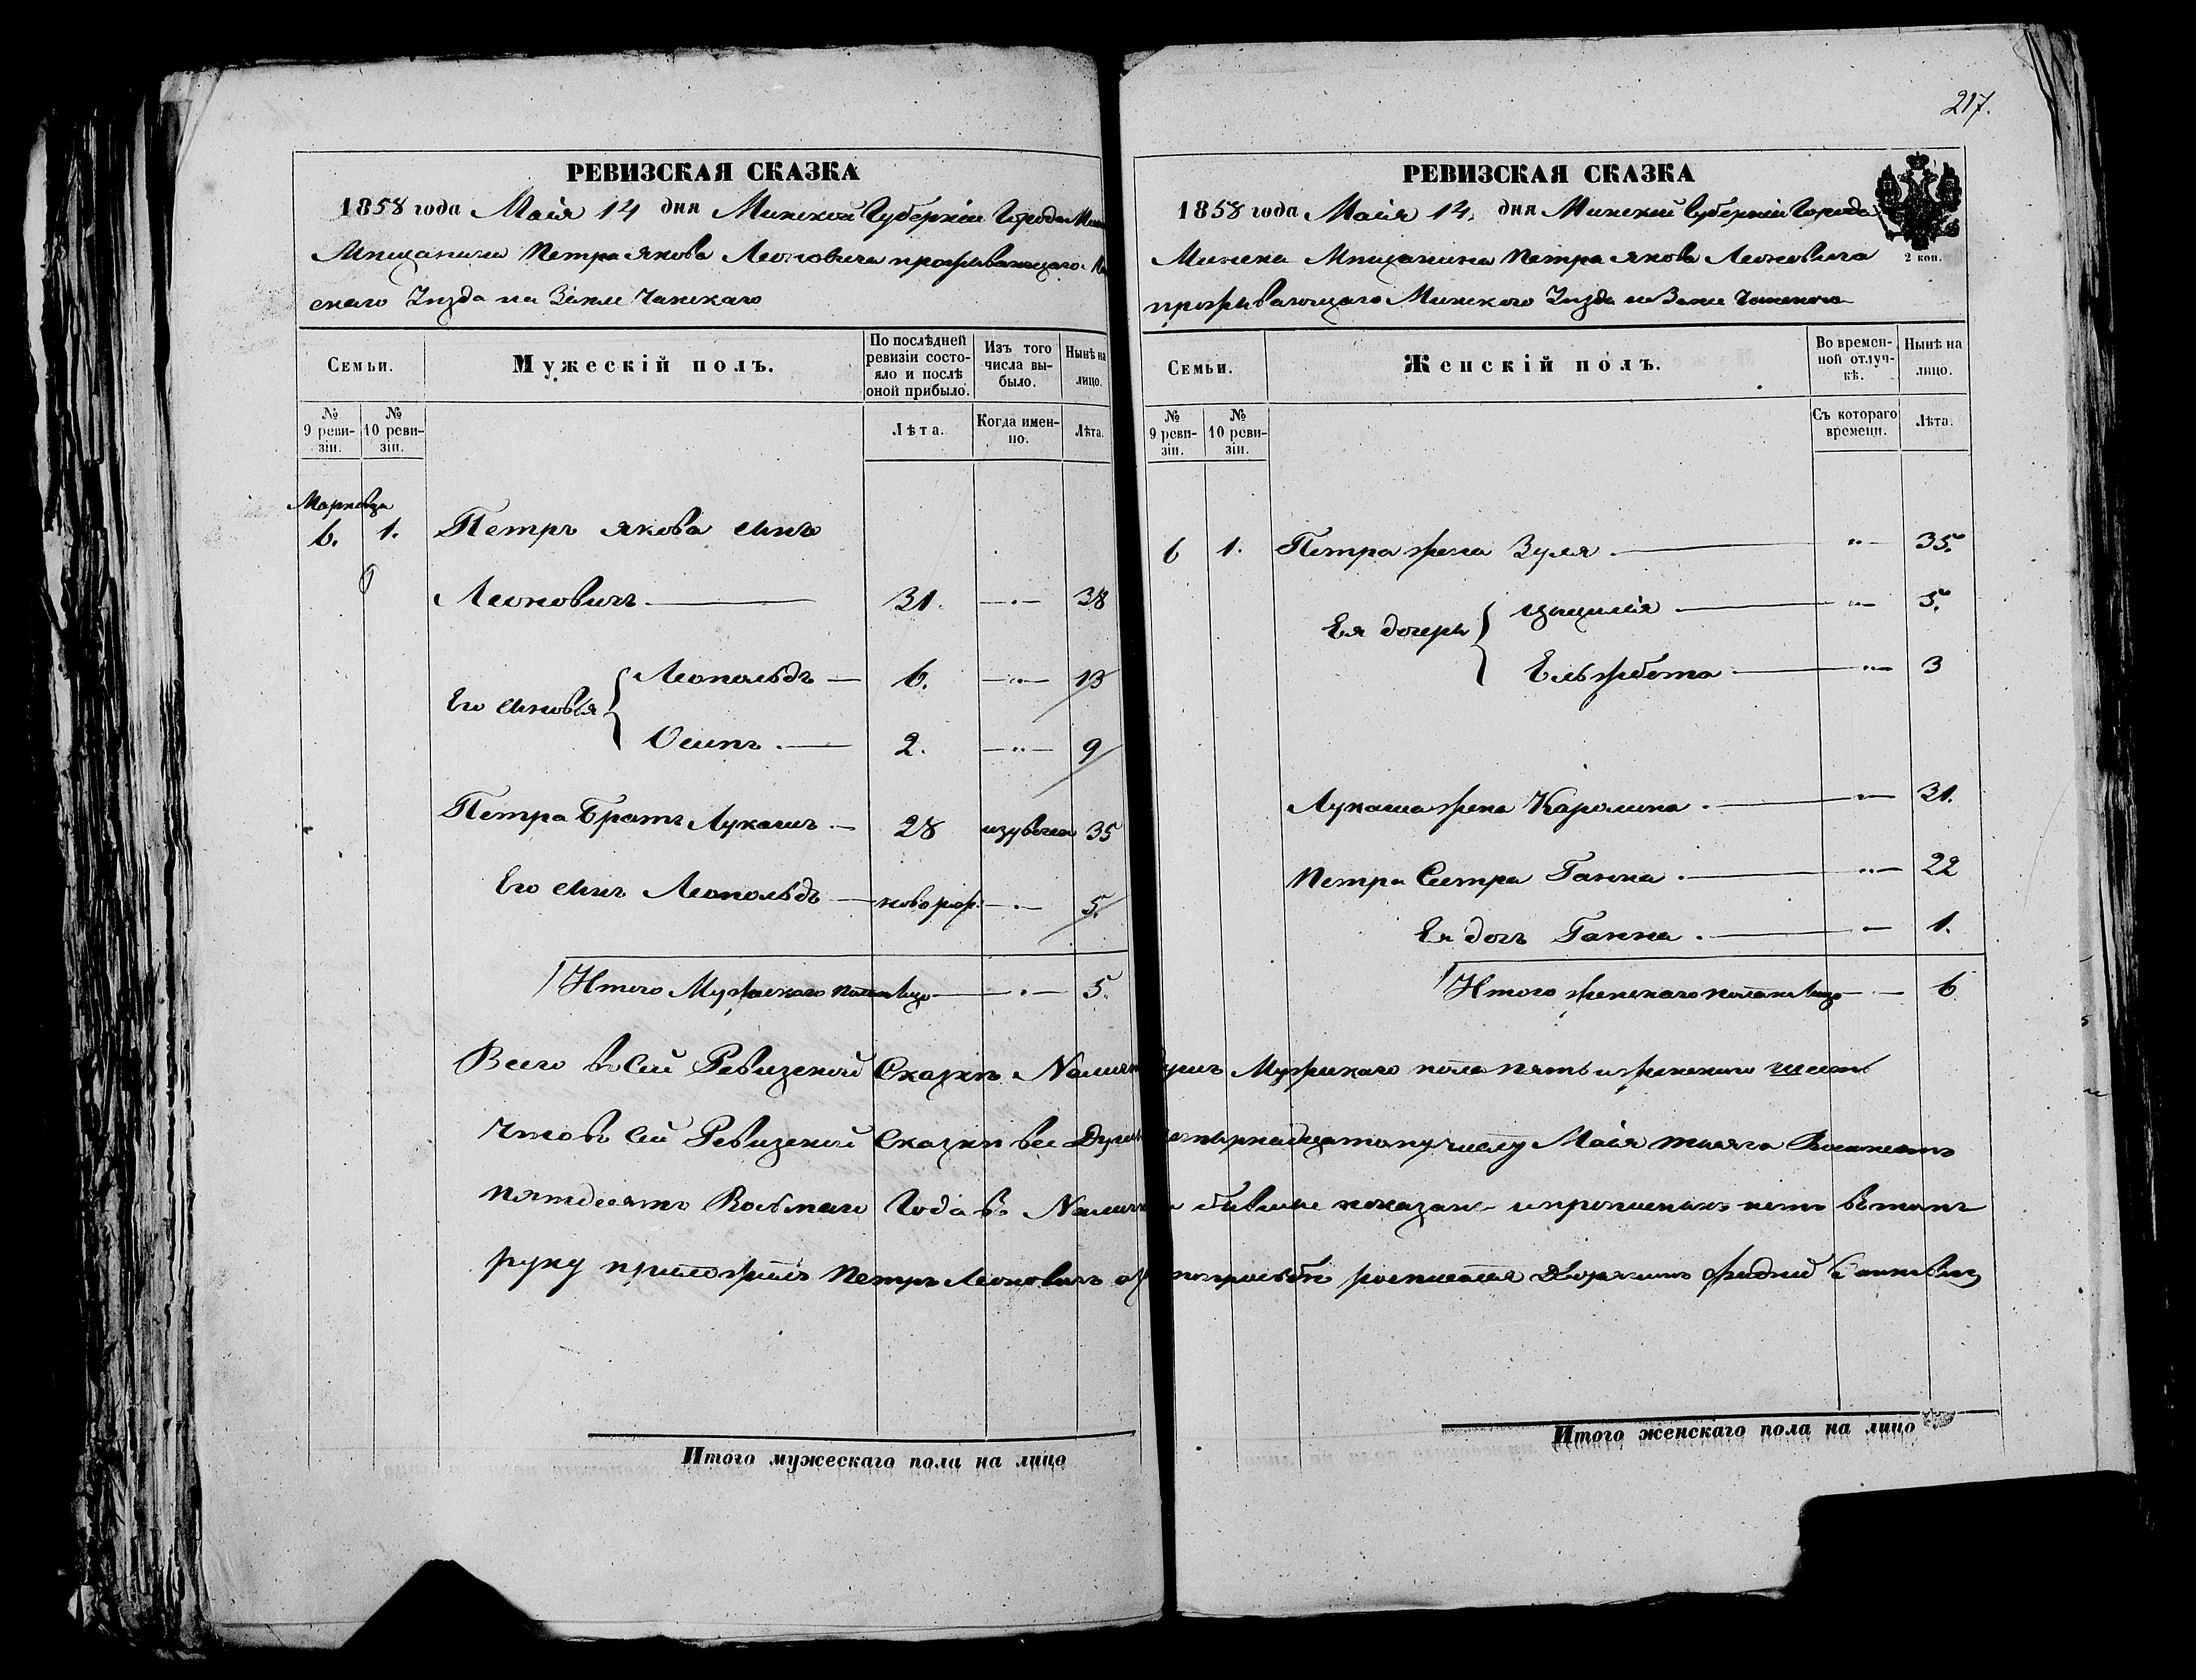 217.
РЕВИЗСКАЯ СКАЗКА
1858 года Маія 14 дня Минской Губерніи Города
Мѣщанина Петра Якова Леоновича проживающаго
скаго Уѣзда на Землѣ
Семьи.
Мужескій полъ.
По послѣдней ревизіи состояло и послѣ оной прибыло.
Изъ того числа выбыло.
Нынѣ на лицо.
№ 9 ревизіи.
№ 10 ревизіи.
Лѣта.
Когда именно.
Лѣта.
6. 1. Петръ Якова сынъ
Леоновичъ 31. 38
Его сыновья { Леопольдъ 6. 13
Осипъ 2. 9
Петра Братъ Лукашъ 28 35
Его сынъ Леопольдъ новорож. 5.
Итого Мужескаго пола на лицо 5.
РЕВИЗСКАЯ СКАЗКА
1858 года Маія 14. дня Минской Губерніи Города
Минска Мѣщанина Петра Якова Леоновича
2 коп.
проживающаго Минского Уѣзда на Землѣ
Семьи.
Женскій полъ.
Во временной отлучкѣ.
Нынѣ на лицо.
№ 9 ревизіи.
№ 10 ревизіи.
Съ котораго времени.
Лѣта.
6 1. Петра жена Зуля 35.
Ея дочери { Цыцилія 5.
Ельжбета 3
Лукаша жена Каролина 31.
Петра Сестра Ганна 22
Ея дочь Ганна 1.
Итого женскаго пола на лицо 6
Всего въ сей Ревизской Сказкѣ Мужескаго пола пять и женскаго шесть
Что въ сей Ревизской Сказкѣ всѣ числу Маія тысяча Восемсотъ
пятдесятъ Восьмаго Года въ показаны и прописныхъ нетъ въ томъ
руку приложилъ Петръ Леоновичъ по прозьбѣ росписался Дворянинъ
Итого мужескаго пола на лицо
Итого женскаго пола на лицо